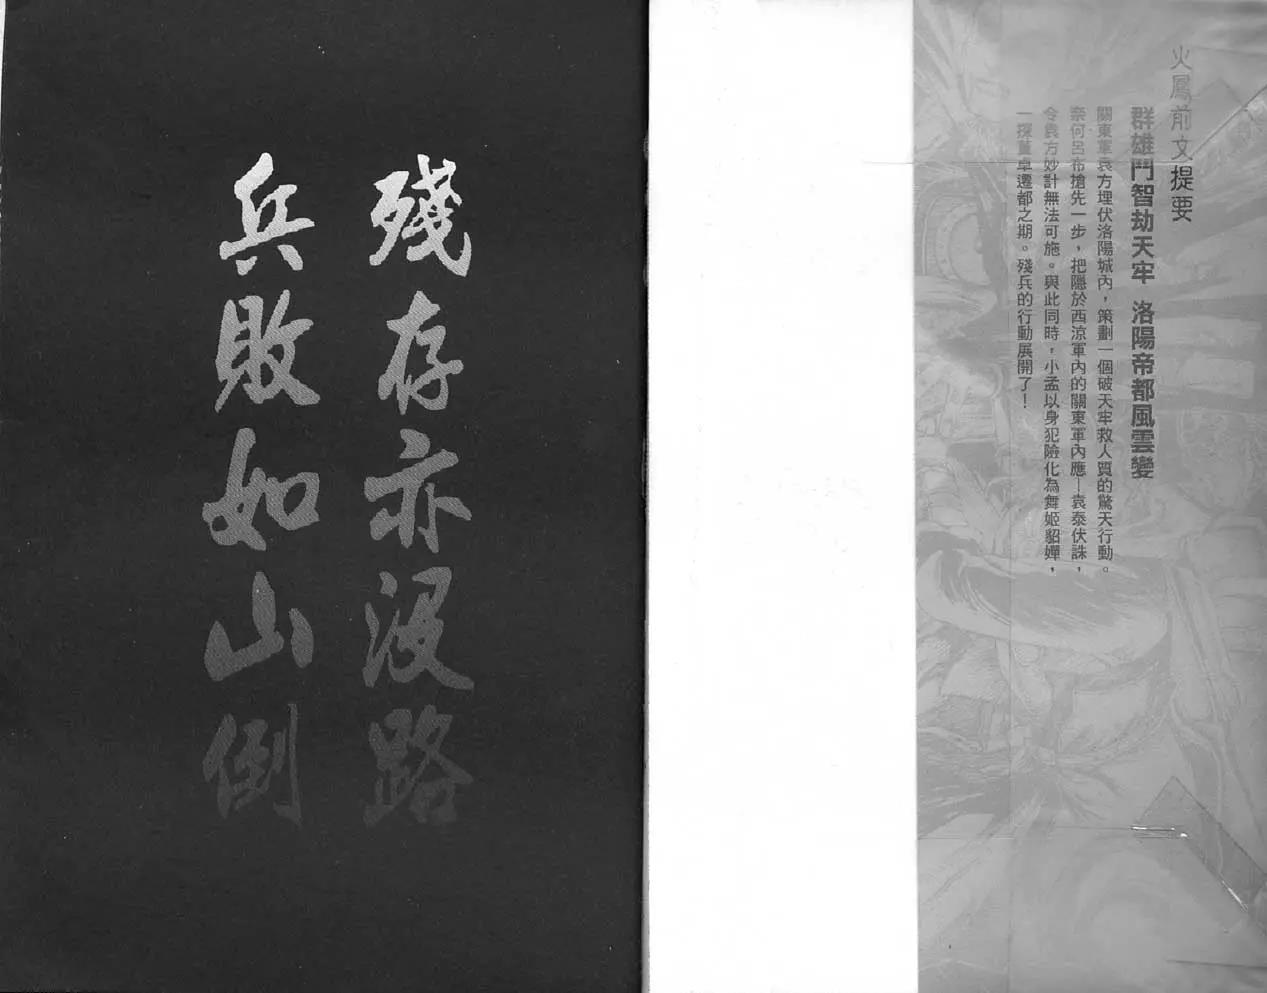 火鳳前文提要
群雄鬥智劫天牢 洛陽帝都風雲變
關東軍袁方埋伏洛陽城內，策劃一個破天牢救人質的驚天行動。
奈何呂布搶先一步，把隱於西涼軍內的關東軍內應—袁泰伏誅，
令袁方妙計無法可施。與此同時，小孟以身犯險化為舞姬貂嬋，
一探董卓遷都之期。殘兵的行動展開了！
殘存亦沒路
兵敗如山倒